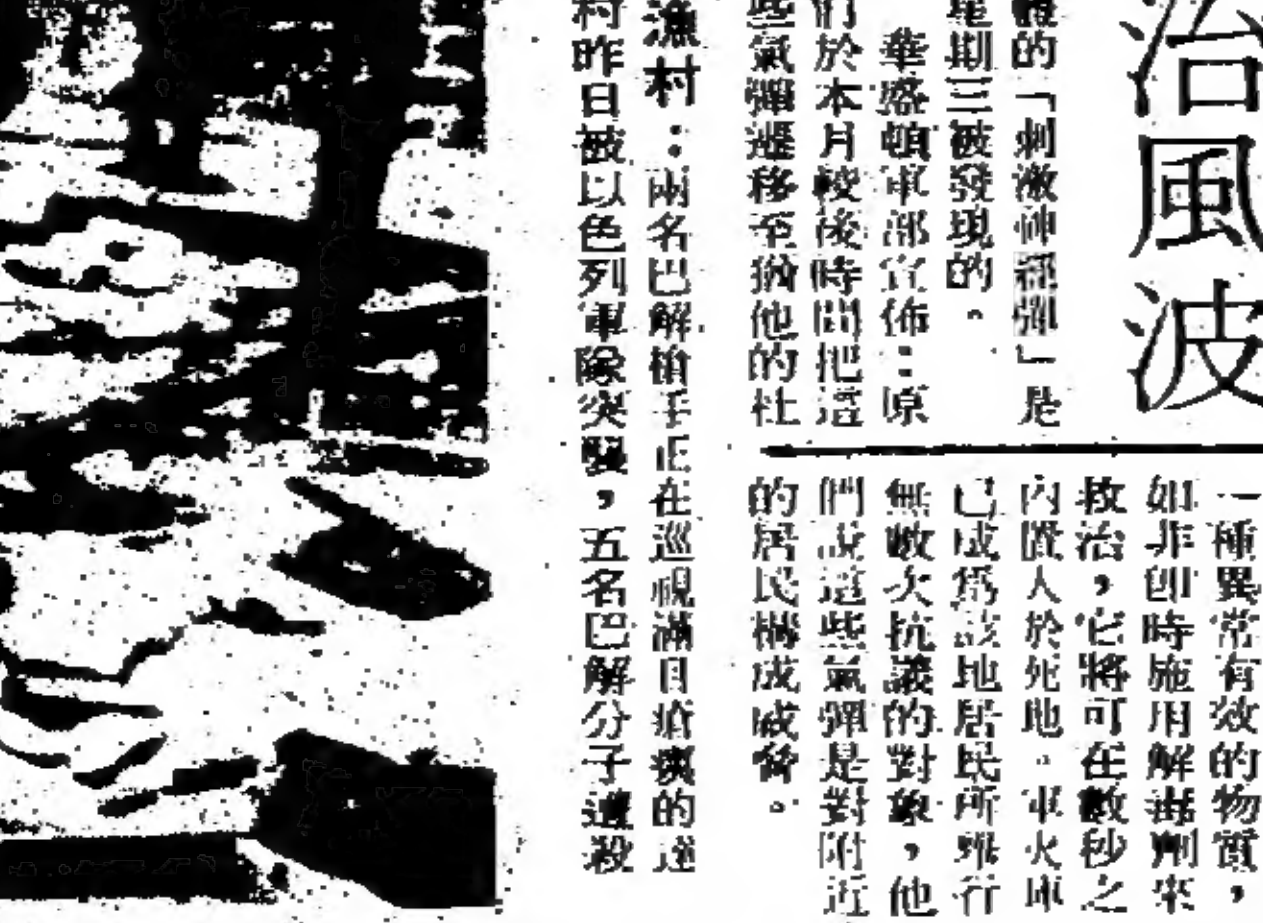 治風波
的「刺激神經彈」是
星期三被發現的。
華盛頓軍部宣佈：原
們於本月較後時間把這
些氣彈遷移至猶他的杜
一種異常有效的物質，
如非即時施用解毒劑來
救治，它將可在數秒之
內置人於死地。軍火庫
已成爲該地居民所進行
無數次抗議的對象，他
們說這些氣彈是對附近
的居民構成威脅。
漁村：兩名巴解槍手正在巡視滿目瘡痍的達
村昨日被以色列軍隊突襲，五名巴解分子遭殺